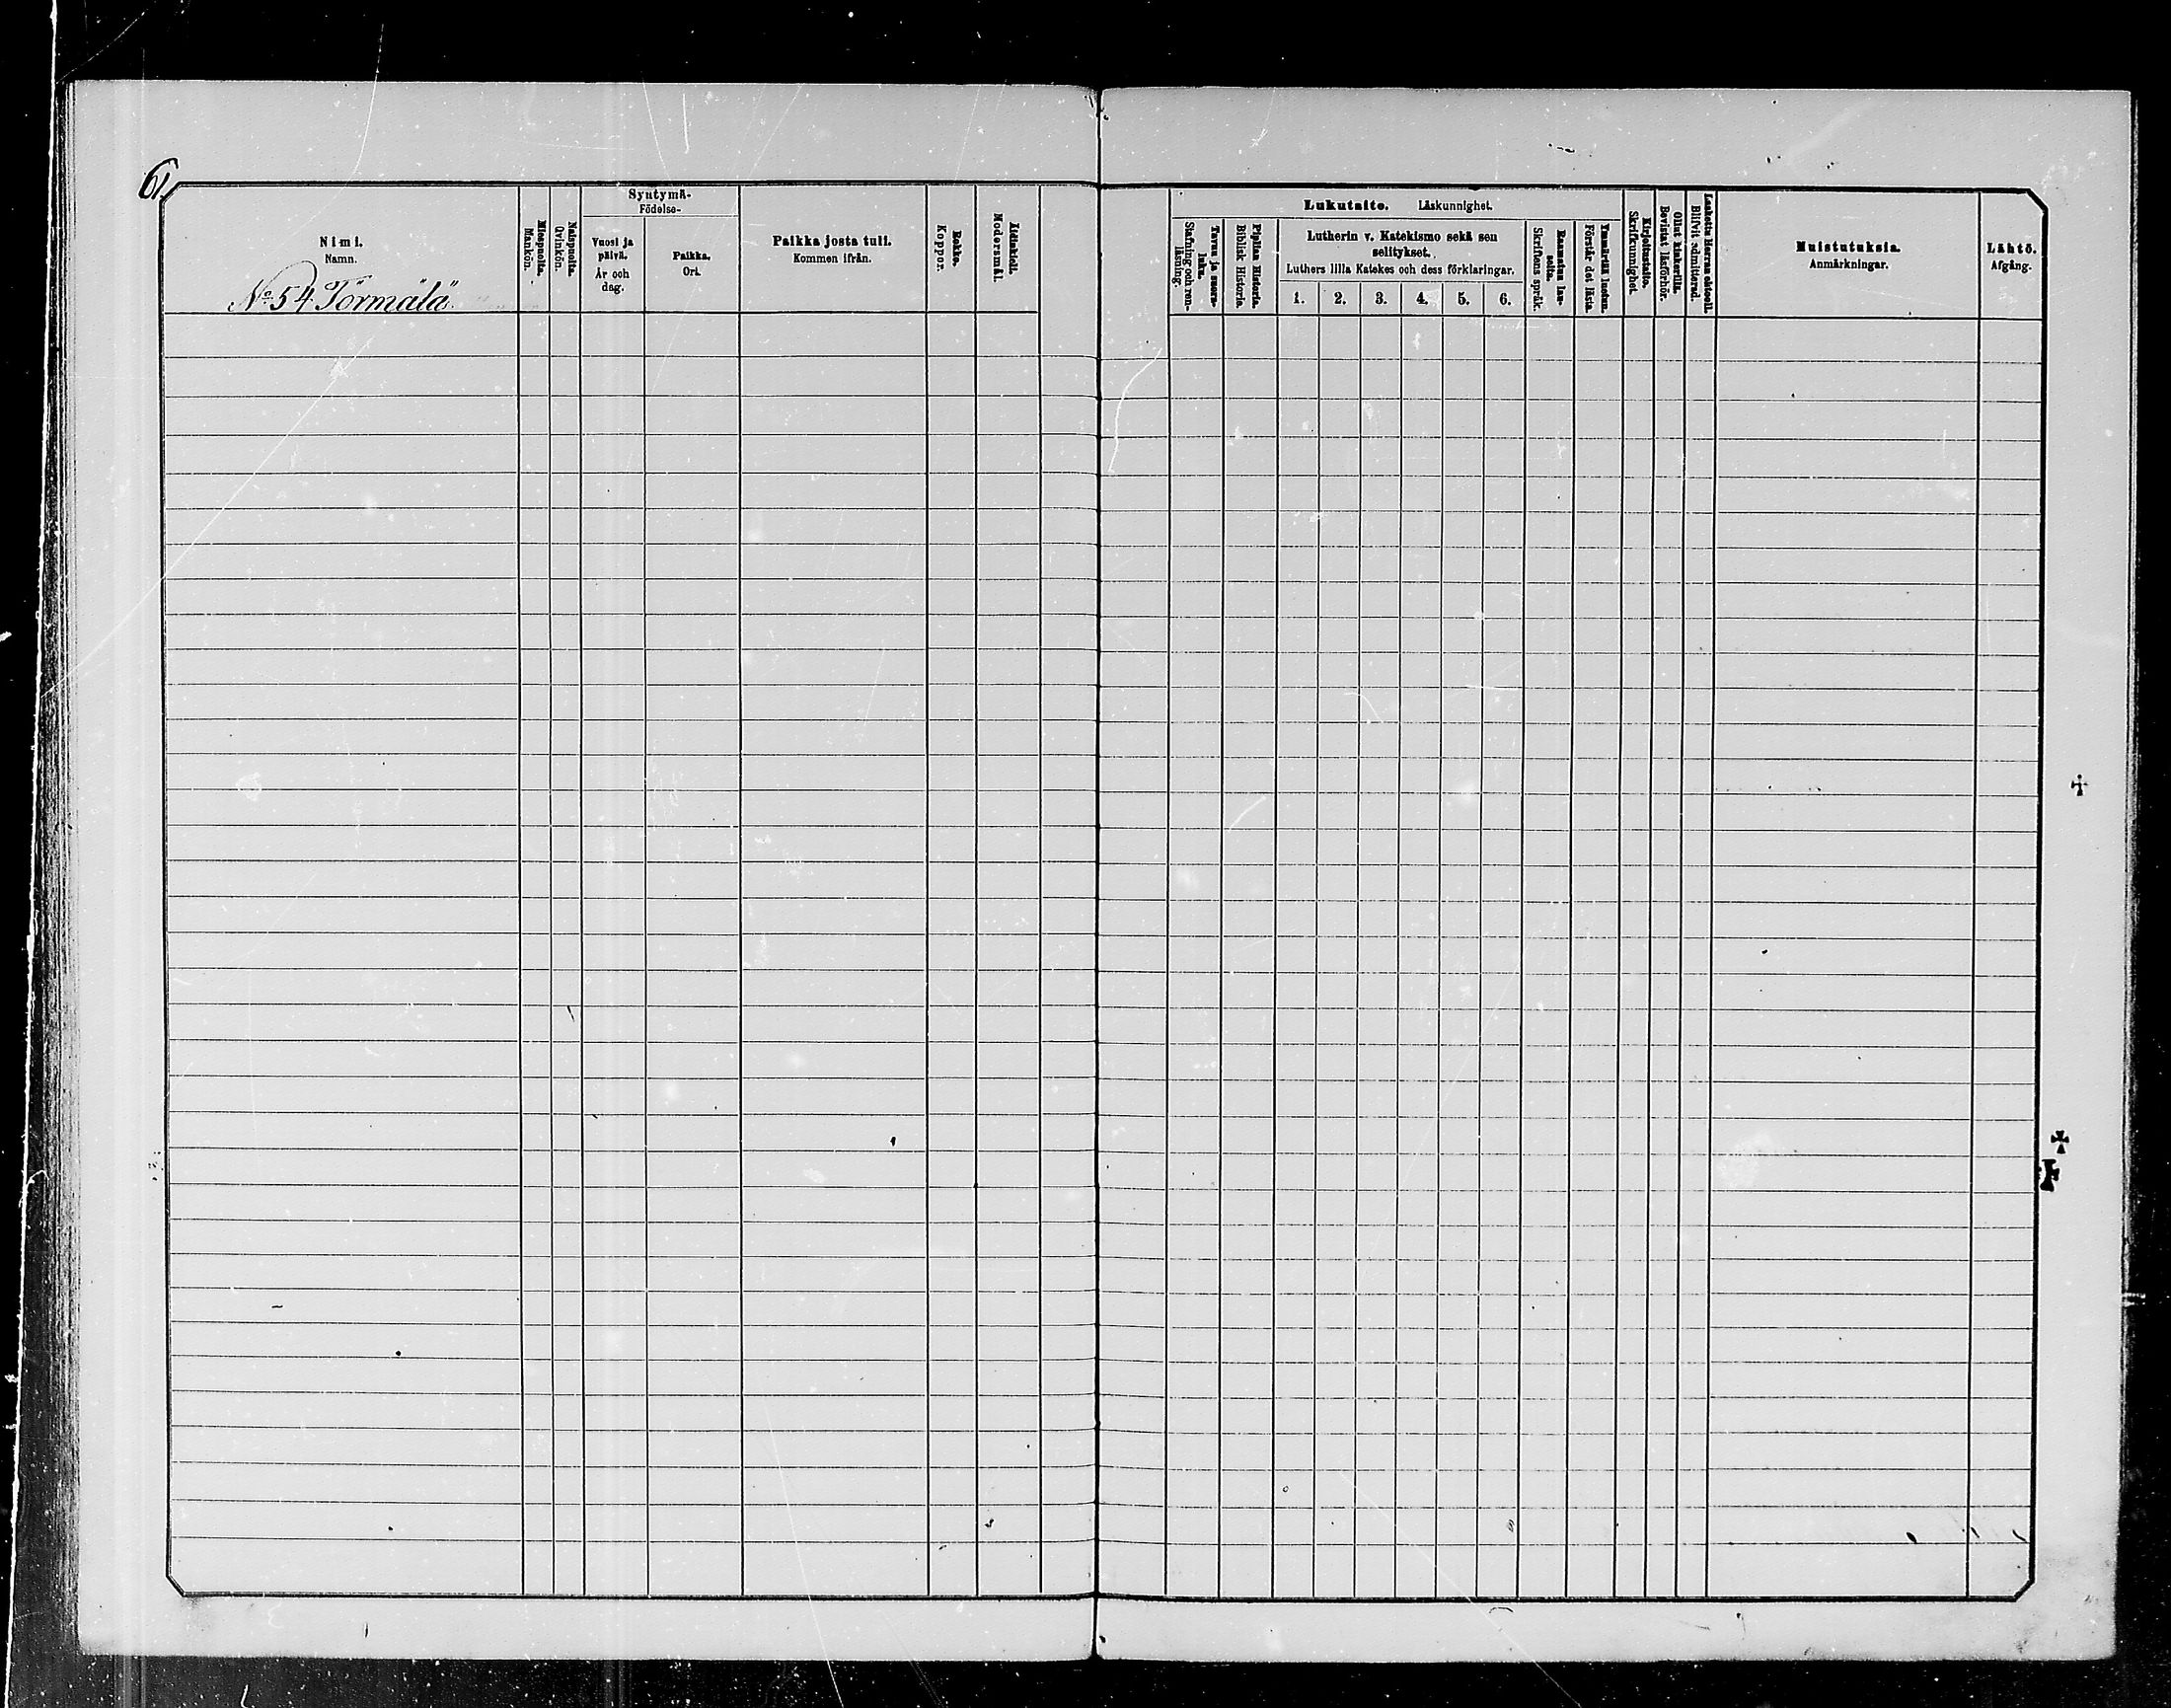 61.
Nimi.
Namn.
No 54 Törmälä.
Miespuolia.
Mankön.
Naispuolia.
Qvinkön.
Syntymä-
Födelse-
Vuosi ja
päivä.
År och
dag.
Paikka.
Ort.
Paikka josta tuli.
Kommen ifrån.
Rokko.
Koppor.
Äidinkieli.
Modersmål.
Lukutaito. Läskunnighet.
Tavuu ja suora-
luku.
Stafning och ren-
läsning.
Piplian Historia.
Biblisk Historia.
Lutherin v. Katekismo sekä sen
selitykset.
Luthers lilla Katekes och dess förklaringar.
1. 2. 3. 4. 5. 6.
Raamatun lau-
seita.
Skriftens språk.
Ymmärtää luetun.
Förstår det lästa.
Kirjoitustaito.
Skrifkunnighet.
Ollut kinkerillä.
Bevistat läsförhör.
Laskettu Herran ehtoolle.
Blifvit admitterad.
Muistutuksia.
Anmärkningar.
Lähtö.
Afgång.